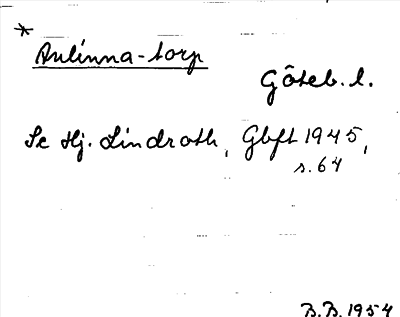 *
Aulinna-torp
Göteb. l.
Se Hj. Lindroth, Gbft 1945,
s. 64
B.B. 1954